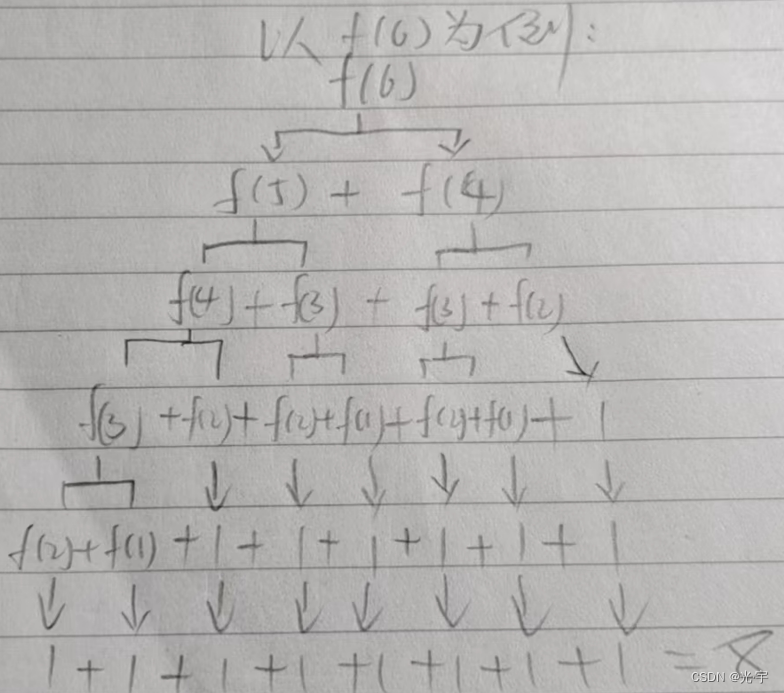 以 f(6) 为例:
f(6)
f(5) + f(4)
f(4) + f(3) + f(3) + f(2)
f(3) + f(2) + f(2) + f(1) + f(2) + f(1) + 1
f(2) + f(1) + 1 + 1 + 1 + 1 + 1 + 1
1 + 1 + 1 + 1 + 1 + 1 + 1 + 1 = 8
CSDN @光·宇